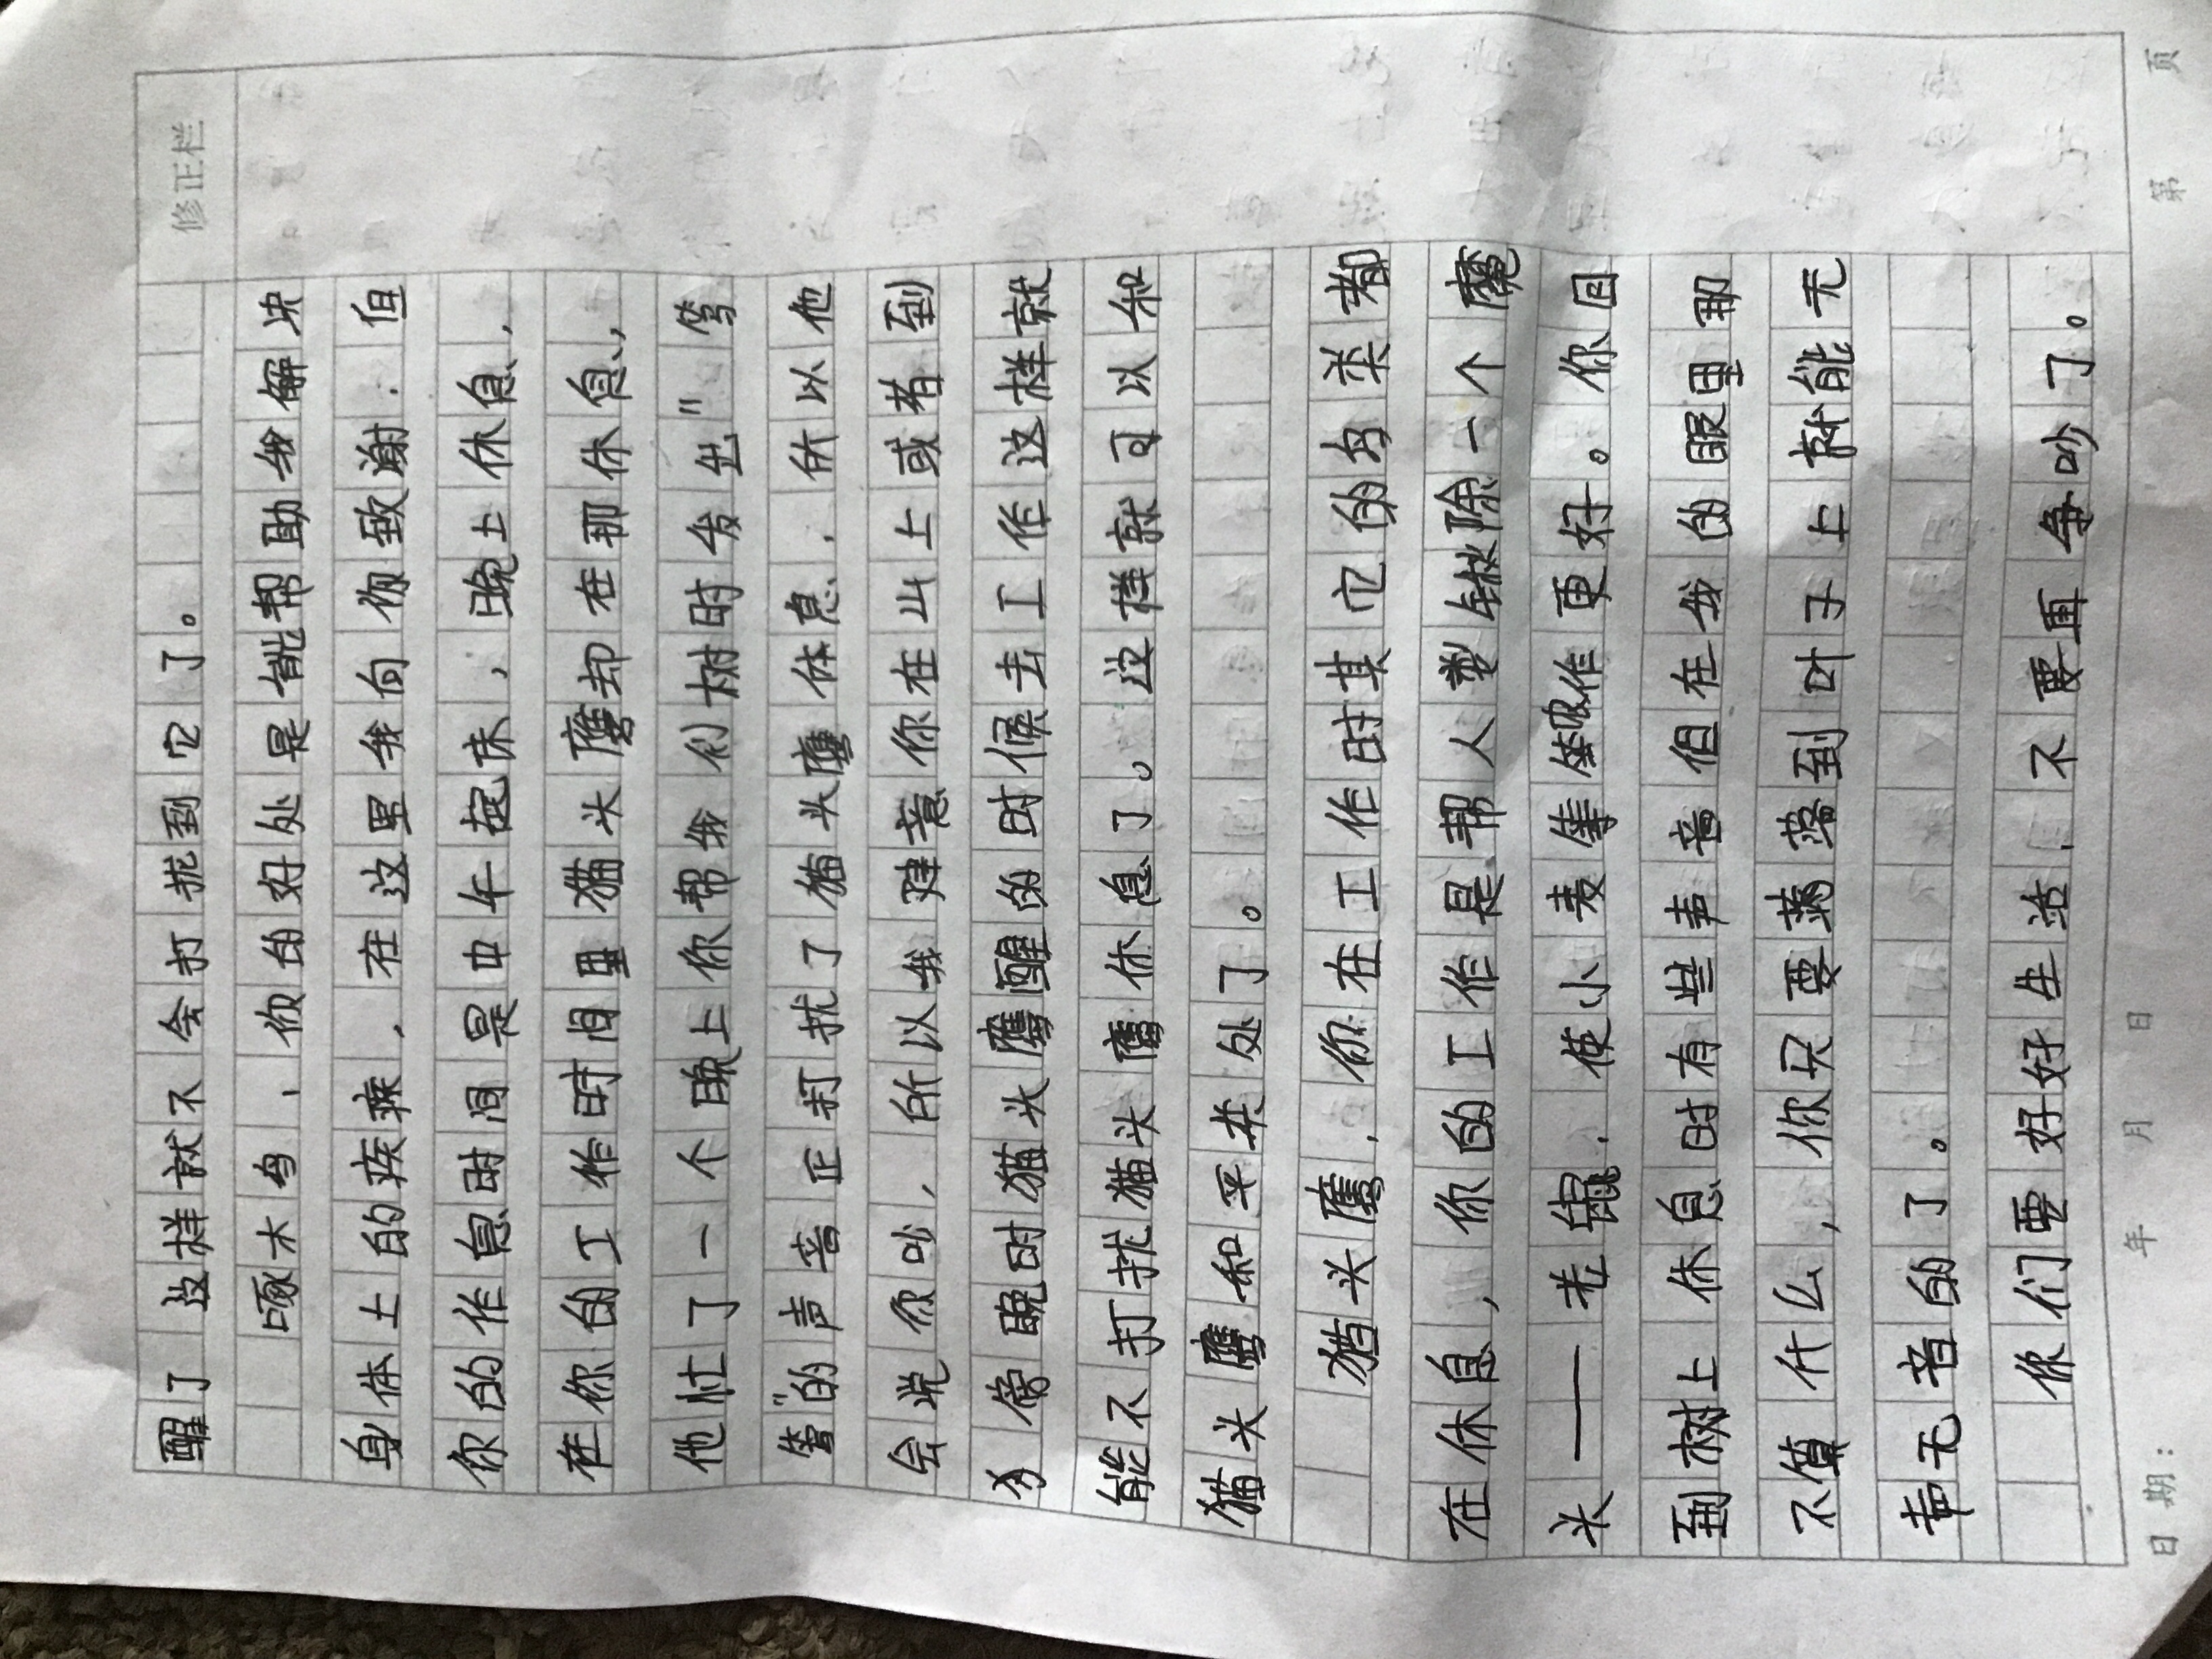 修正栏
醒了这样就不会打扰到它了。
啄木鸟，你的好处是能帮助我解决
身体上的疾病，在这里我向你致谢.但
你的作息时间是中午起床，晚上休息，
在你的工作时间里猫头鹰却在那休息，
他忙了一个晚上你帮我们树时发出"笃
笃"的声音正打扰了猫头鹰休息，所以他
会说你吵，所以我建意你在山上或者到
傍晚时猫头鹰醒的时候去工作这样就
能不打扰猫头鹰休息了。这样就可以和
猫头鹰和平共处了。
猫头鹰，你在工作时其它的鸟类都
在休息，你的工作是帮人类铲除一个魔
头——老鼠.使小麦等农作更好。你回
到树上休息时有些声音但在我的眼里那
不算什么，你只要落到叶子上就能无
声无音的了。
你们要好好生活，不要再争吵了。
日期：年月日 第页